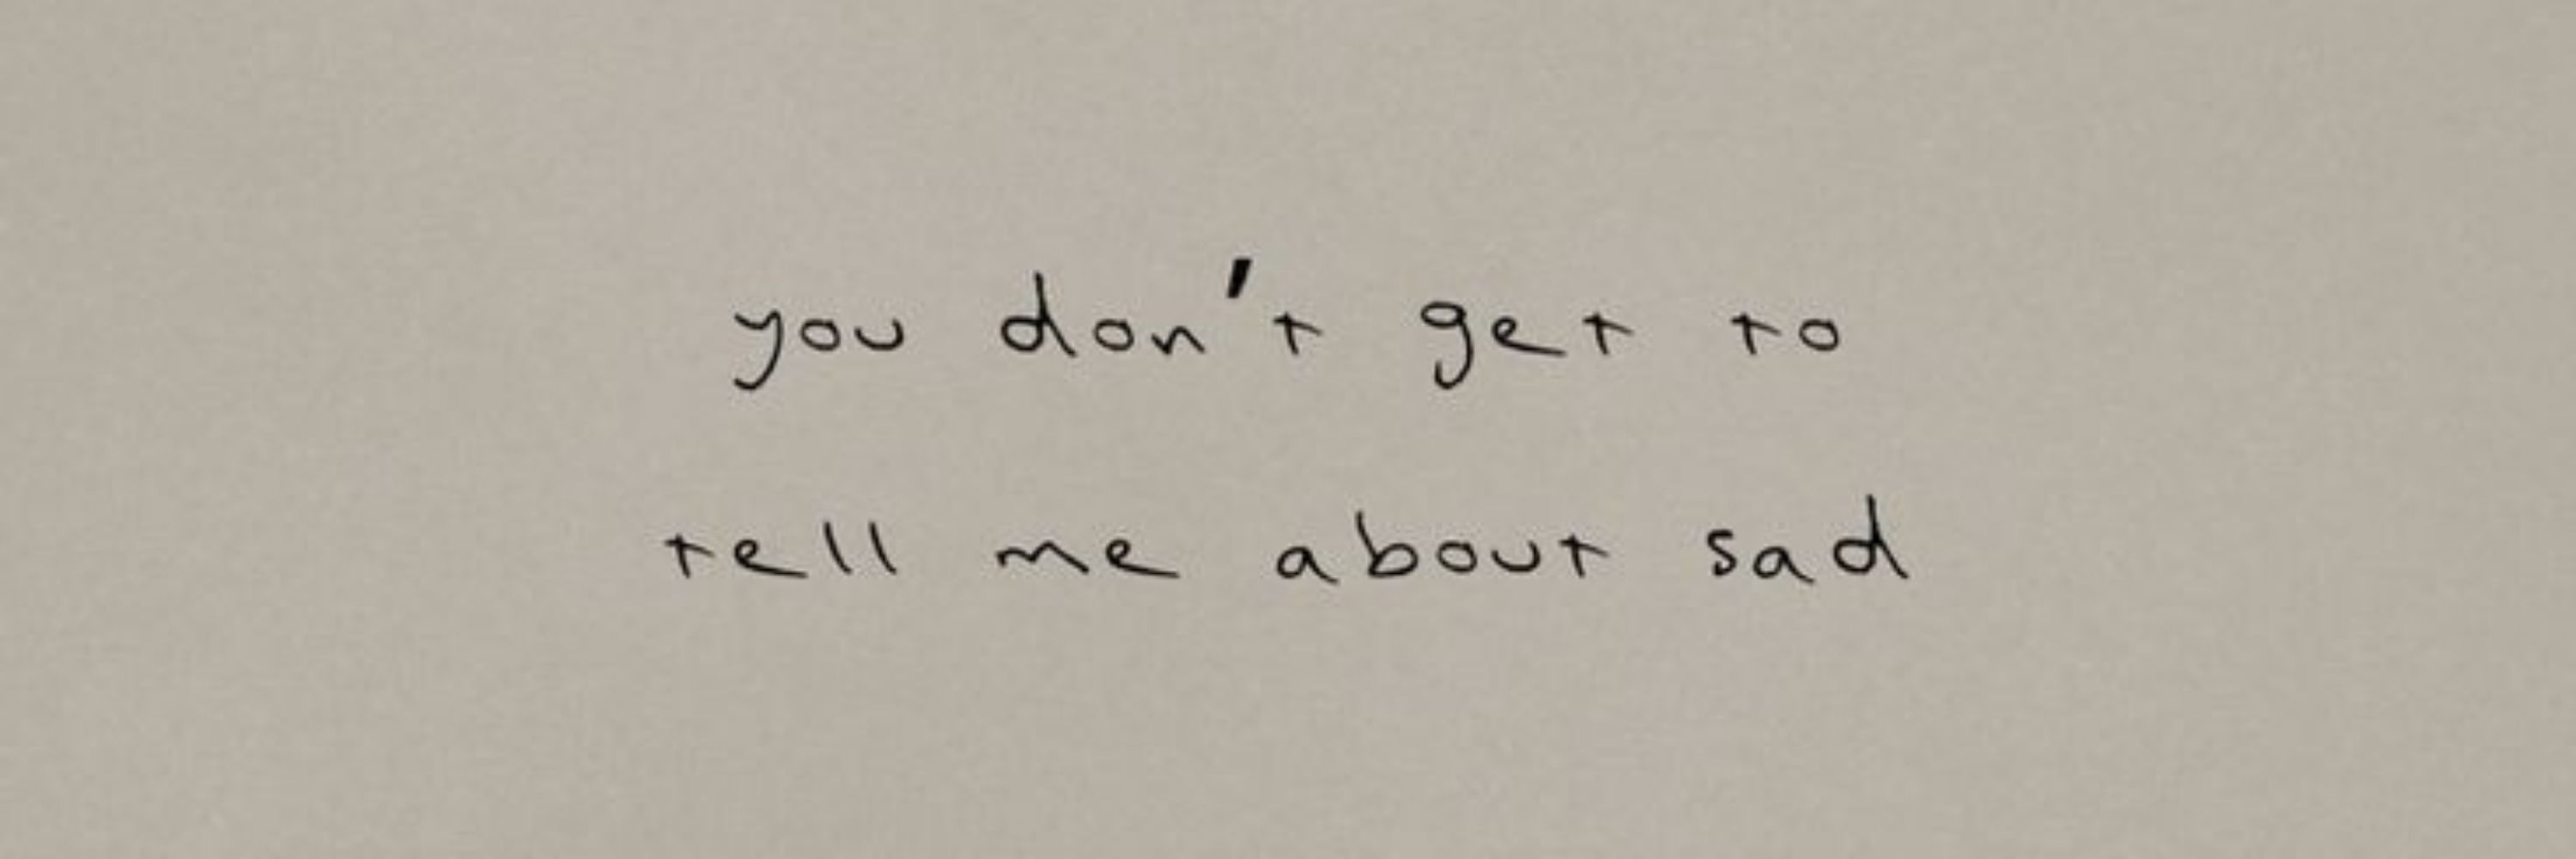 you don't get to
tell me about sad